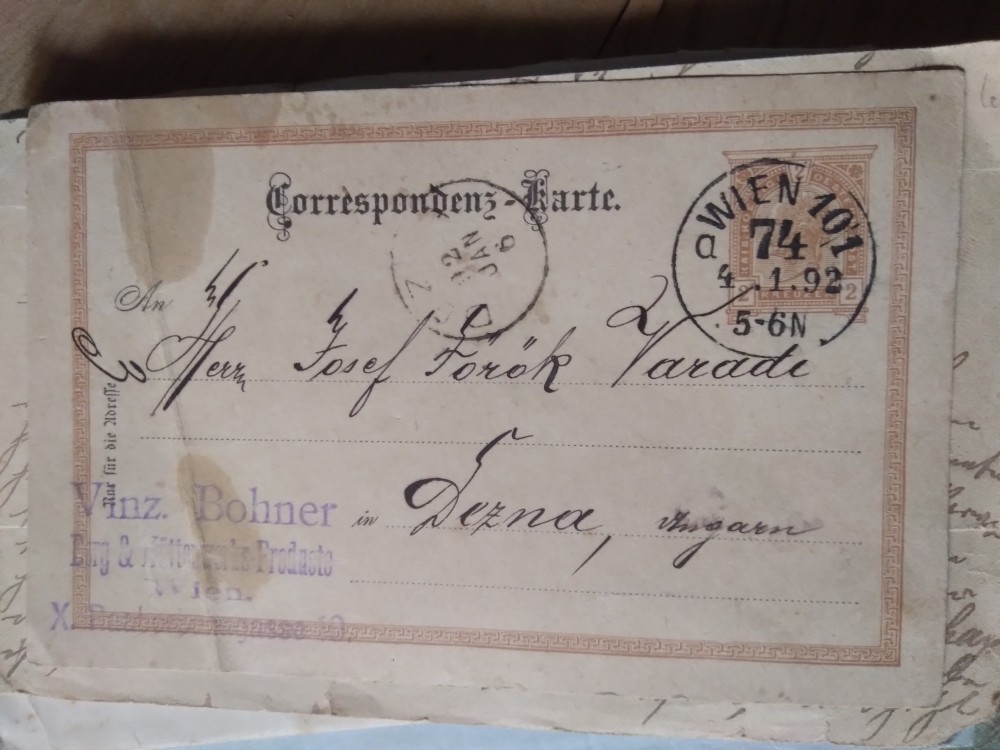 Correspondenz-Karte.
WIEN 101
a 74
4.1.92
5-6N
92
JAN
6
2 KREUZER 2
An
Herrn Josef Török Varadi
Nur für die Adresse
in Dezna, Ungarn
Vinz. Bohner
Berg & Hüttenwerks-Producte
Wien.
X.